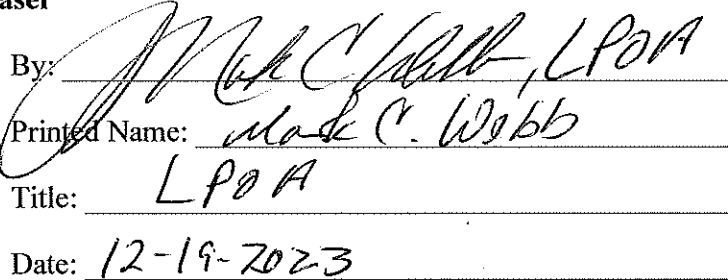 By: Mark C. Webb, LPOA
Printed Name: Mark C. Webb
Title: LPOA
Date: 12-19-2023